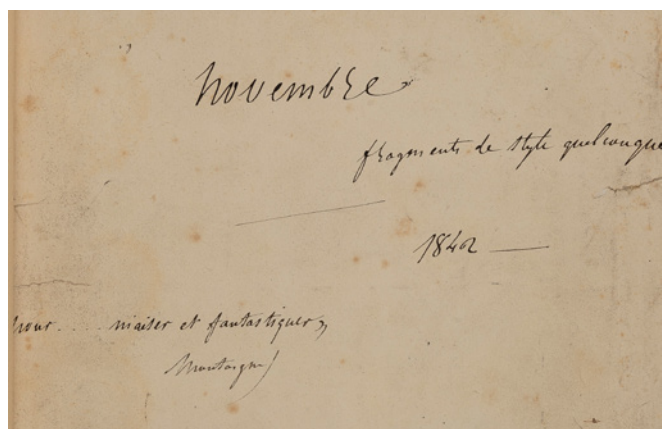 Novembre
fragments de style quelconque
1842 —
pour .... niaiser et fantastiquer,
Montaigne)